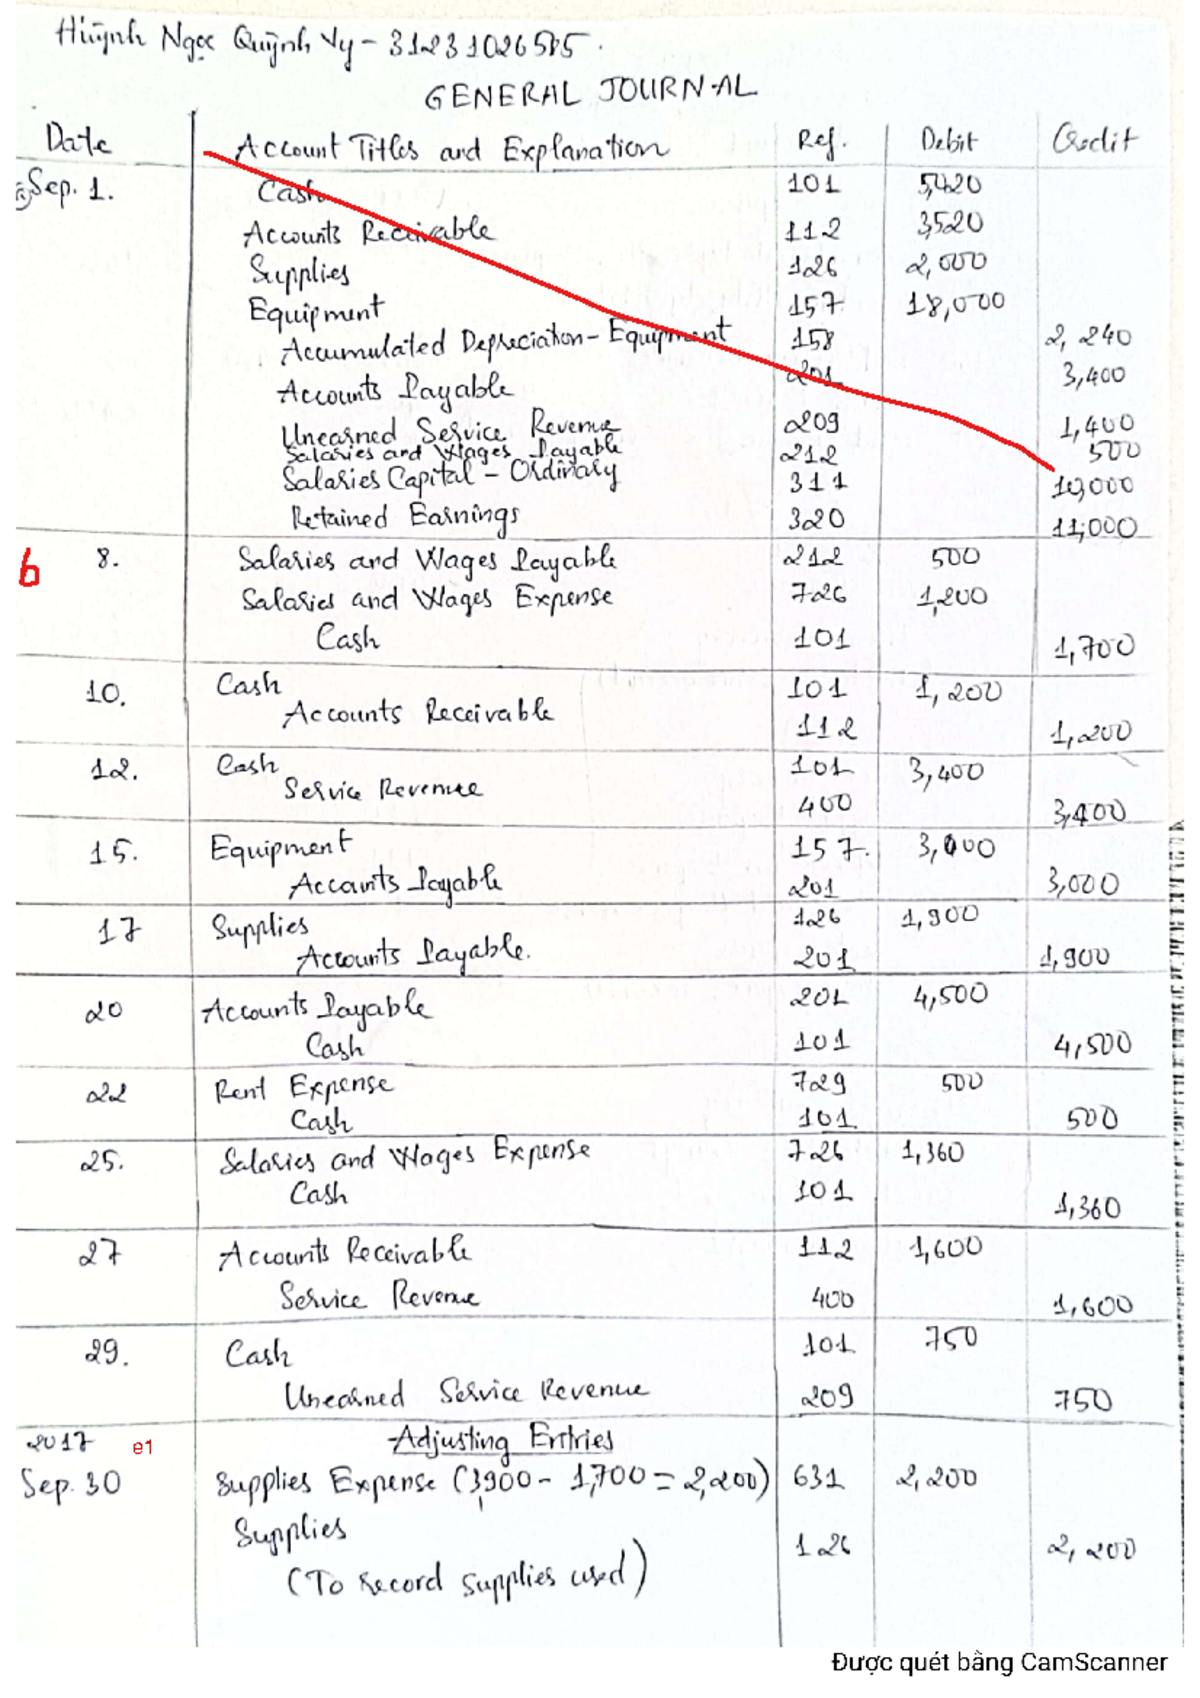 Huỳnh Ngọc Quỳnh Vy - 31231026515.
GENERAL JOURNAL
Date Account Titles and Explanation Ref. Debit Credit
Sep. 1. Cash 101 5,420
Accounts Receivable 112 3,520
Supplies 126 2,000
Equipment 157 18,000
Accumulated Depreciation - Equipment 158 2,240
Accounts Payable 201 3,400
Unearned Service Revenue 209 1,400
Salaries and Wages Payable 212 500
Salaries Capital - Ordinary 311 10,000
Retained Earnings 320 11,000
b 8. Salaries and Wages Payable 212 500
Salaries and Wages Expense 726 1,200
Cash 101 1,700
10. Cash 101 1,200
Accounts Receivable 112 1,200
12. Cash 101 3,400
Service Revenue 400 3,400
15. Equipment 157. 3,000
Accounts Payable 201 3,000
17 Supplies 126 1,900
Accounts Payable. 201 1,900
20 Accounts Payable 201 4,500
Cash 101 4,500
22 Rent Expense 729 500
Cash 101 500
25. Salaries and Wages Expense 726 1,360
Cash 101 1,360
27 Accounts Receivable 112 1,600
Service Revenue 400 1,600
29. Cash 101 750
Unearned Service Revenue 209 750
2017 e1 Adjusting Entries
Sep. 30 Supplies Expense (3,900 - 1,700 = 2,200) 631 2,200
Supplies 126 2,200
(To record supplies used)
Được quét bằng CamScanner